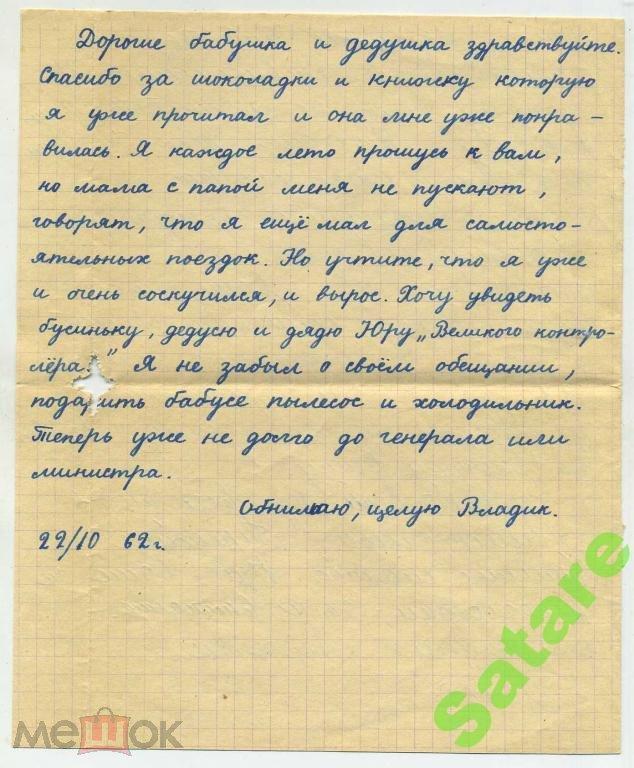 Дорогие бабушка и дедушка здравствуйте.
Спасибо за шоколадки и книжку которую
я уже прочитал и она мне уже понра-
вилась. Я каждое лето прошусь к вам,
но мама с папой меня не пускают,
говорят, что я ещё мал для самосто-
ятельных поездок. Но учтите, что я уже
и очень соскучился, и вырос. Хочу увидеть
бусиньку, дедусю и дядю Юру „Великого контро-
лёра." Я не забыл о своём обещании,
подарить бабусе пылесос и холодильник.
Теперь уже не долго до генерала или
министра.
Обнимаю, целую Владик.
22/10 62г.
Satare
мешок